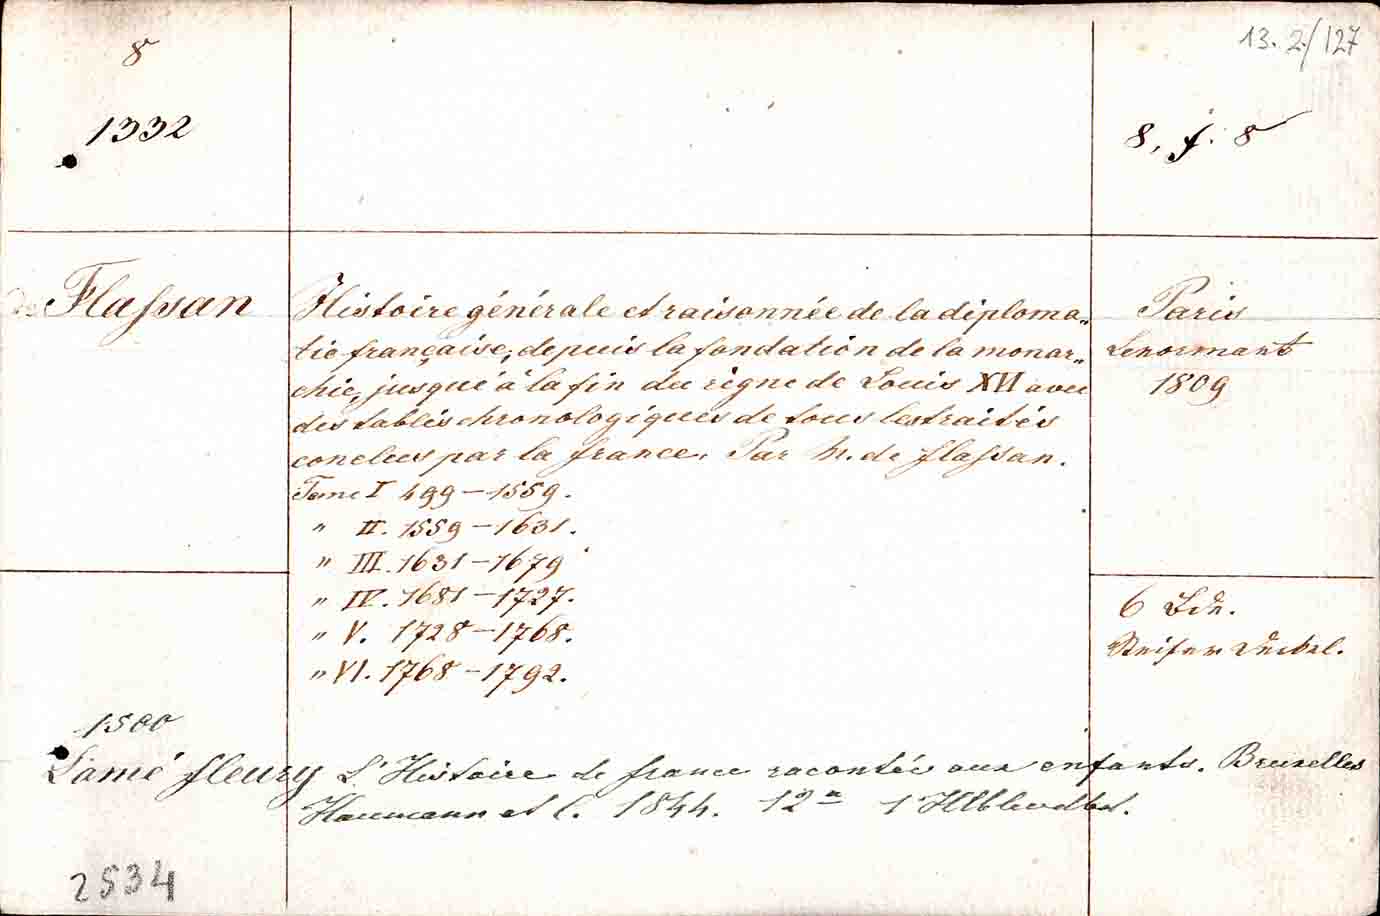 8
13.2./127
1332
8, f. 8
de Flassan
Histoire générale et raisonnée de la diploma„
tie française, depuis la fondation de la monar„
chie, jusqué'à la fin du règne de Louis XVI avec
des tables chronologiques de tous les traités
conclus par la france. Par M. de flassan.
Paris
Lenormant
1809
Tome I 499–1559.
" II. 1559–1631.
" III. 1631–1679
" IV. 1681–1727.
" V. 1728–1768.
" VI. 1768–1792.
6 Bde.
Steifer Deckel.
1500
Lamé fleury L'Histoire de france racontée aux enfants. Bruxelles
Haumann et C. 1844. 12º 1
2534